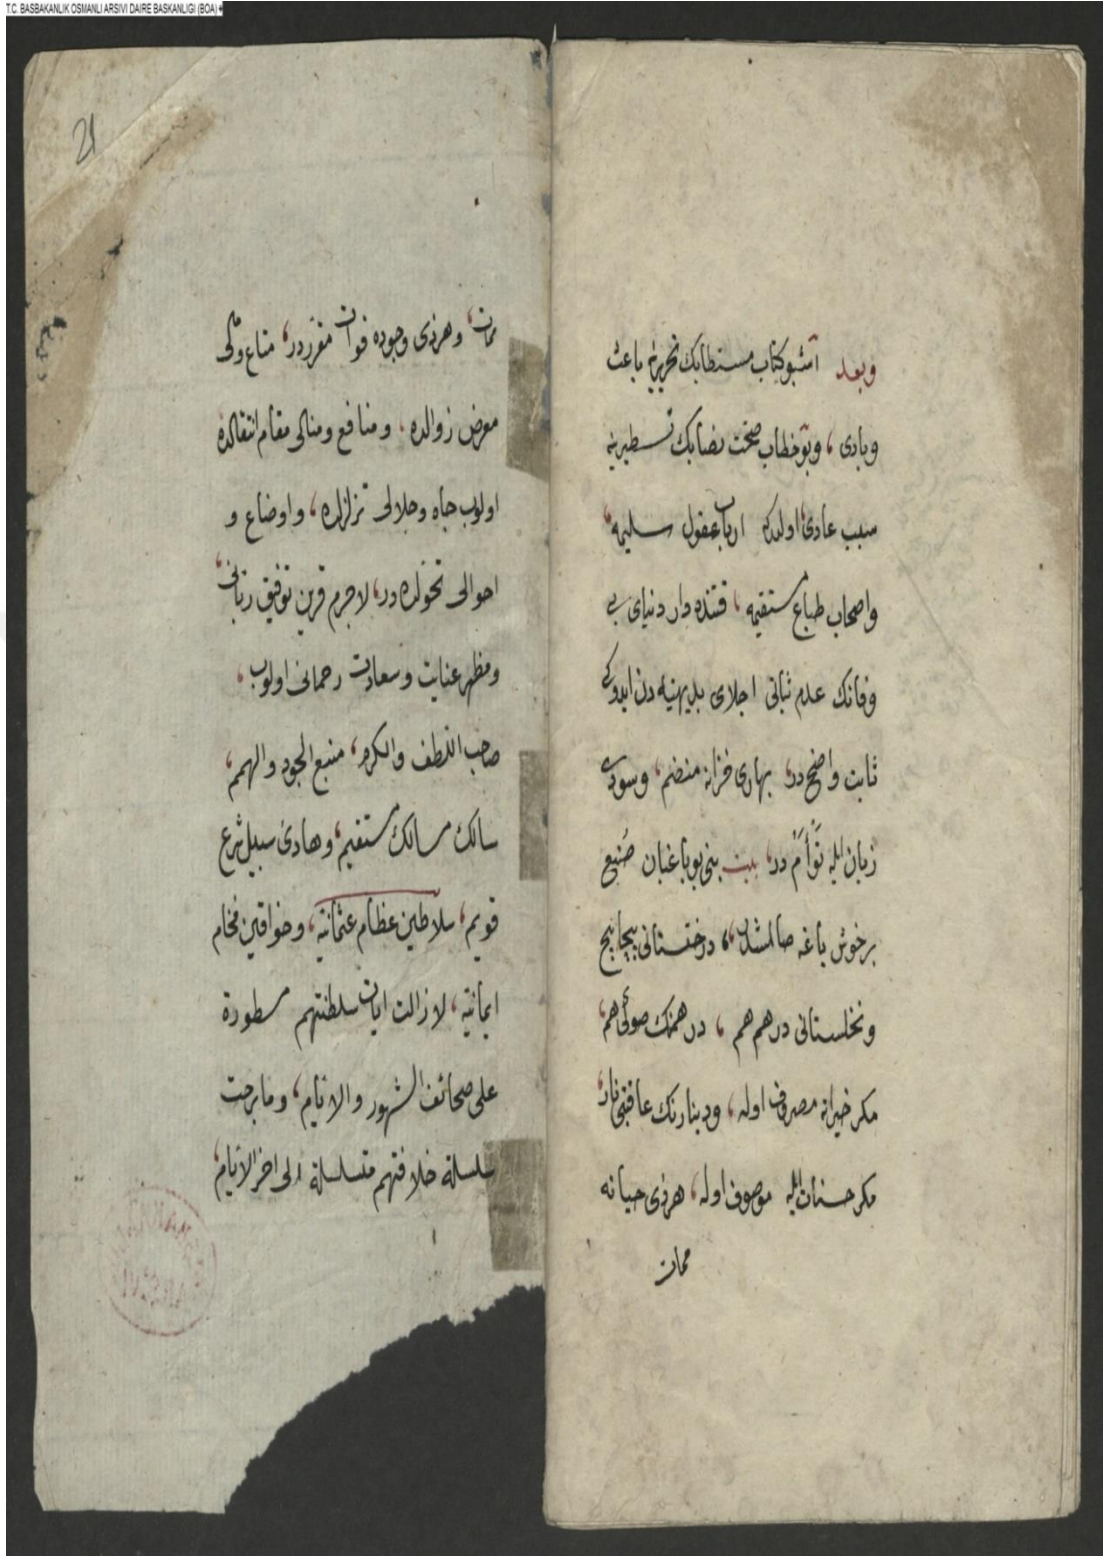 T.C. BASBAKANLIK OSMANLI ARSIVI DAIRE BASKANLIGI (BOA)
وبعد اشبو كتاب مستطابك تحريرينه باعث
وبادى ، وبو خطاب صحت نصابك تسطيرينه
سبب عادى اولدركه ارباب عقول سليمه ،
واصحاب طباع مستقيمه ، فتنده دار دنياى بى
وفانك عدم ثباتى اجلاى بديهيه دن ايدوكى
ثابت واضح در ، بهارى خزانه منضم ، وسودى
زيان ايله توأم در ، بيت بنى بو باغبان صنيع
برخوش باغه صالمشدر ،، درختستانى پيچاپيچ
ونخلستانى درهم هم ، درهمنك صوڭى هم ،
مكر خيرانه مصروف اوله ، ودينارنك عاقبتى نار ،
مكر حسنات ايله موصوف اوله ، هر ذى حياته
ممات
21
ممات ، وهر ذى وجوده فوات مقرر در ، متاع ومالى
معرض زوالده ، ومنافع ومنالى مقام انتقالده
اولوب جاه وجلالى تزلزلده ، واوضاع و
احوالى تحولده در ، لاجرم قرين توفيق ربانى ،
ومظهر عنايت وسعادت رحمانى اولوب ،
صاحب اللطف والكرم ، منبع الجود والهمم ،
سالك مسالك مستقيم ، وهادئ سبيل شرع
قويم ، سلاطين عظام عثمانيه ، وخواقين فخام
ايمانيه ، لازالت ايات سلطنتهم مسطورة
على صحائف الشهور والاعوام ، وما برحت
سلسلة خلافتهم متسلسلة الى اخر الايام ،